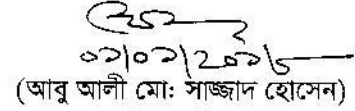 ০১|০১|২০১৮
(আবু আলী মোঃ সাজ্জাদ হোসেন)